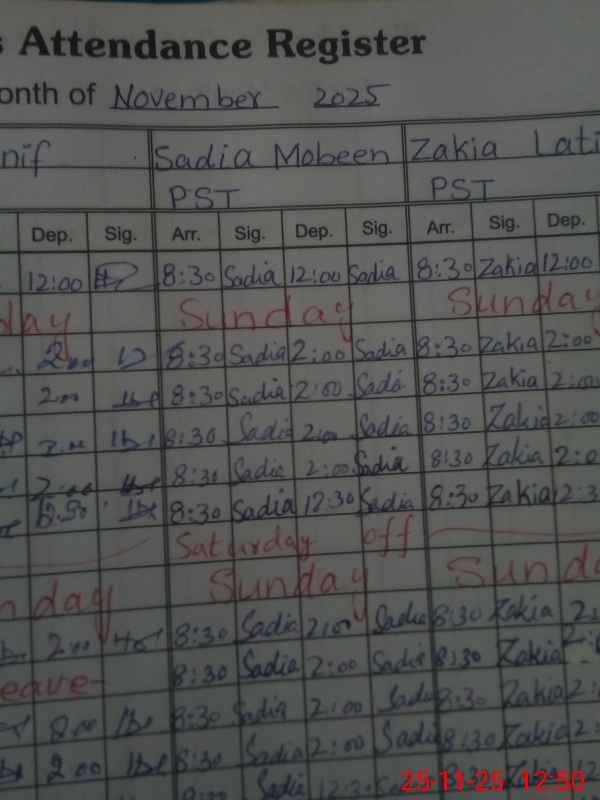 s Attendance Register
onth of November 2025
nif Sadia Mobeen Zakia Lati
PST PST
Dep. Sig. Arr. Sig. Dep. Sig. Arr. Sig. Dep.
12:00 8:30 Sadia 12:00 Sadia 8:30 Zakia 12:00
day Sunday Sunday
2:00 8:30 Sadia 2:00 Sadia 8:30 Zakia 2:00
2:00 8:30 Sadia 2:00 Sadi 8:30 Zakia 2:00
8:30 Sadia 2:00 Sadia 8:30 Zakia 2:00
2:00 8:30 Sadia 2:00 Sadia 8:30 Zakia 2:0
8:30 Sadia 12:30 Sadia 8:30 Zakia 2:3
Saturday off
nday Sunday Sunda
2:00 8:30 Sadia 2:00 Sadia 8:30 Zakia 2:
eave 8:30 Sadia 2:00 Sadia 8:30 Zakia 2:
8:30 Sadia 2:00 Sadia 8:30 Zakia 2:
2:00 8:30 Sadia 2:00 Sadia 8:30 Zakia 2:
Sadia 12:3 8:30 Zakia 12
25-11-25 12:50